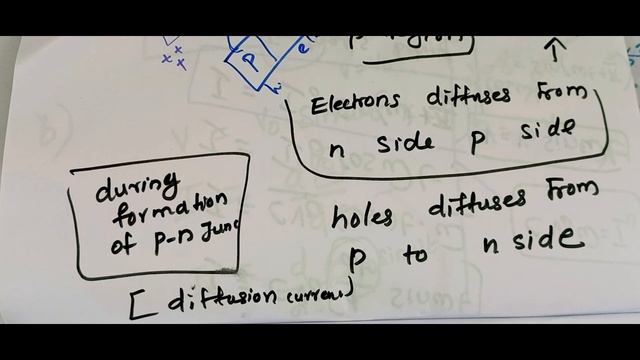 P
Electrons diffuses From
n side p side
during
formation
of p-n Junc
holes diffuses From
p to n side
[ diffusion current)